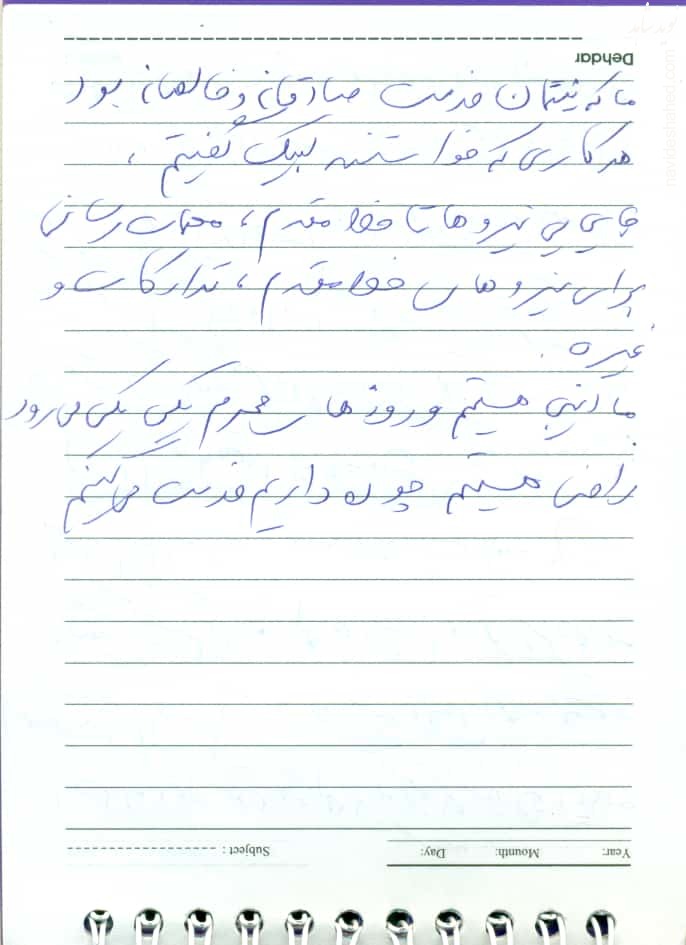 Dehdar
ما که نیتمان خدمت صادقانه و خالصانه بود
هر کاری که خواستند لبیک گفتیم ،
جابجایی نیروها تا خط مقدم ، مهمات رسانی
برای نیروهای خط مقدم ، تدارکات و
غیره .
ما اینجا هستیم و روزهای محرم یکی یکی می رود
راضی هستیم چون داریم خدمت می کنیم
Year: Mounth: Day: Subject :
navideshahed.com